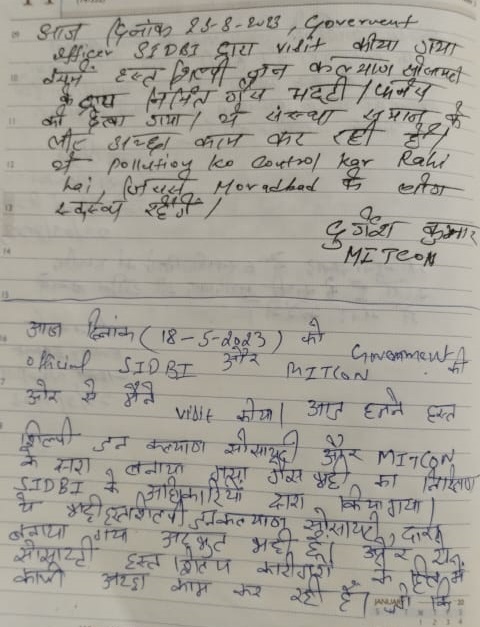 आज दिनांक 23-8-2023, Goverment
officer SIDBI द्वारा visit कीया गया
हस्त शिल्पी जन कल्याण सोसायटी
के द्वारा निर्मित गैस भट्टी
को देखा गया। ये संस्था समाज के
लीए अच्छा काम कर रही है।
ये pollutioy ko control kar Rahi
hai, जिससे Moradbad के लोग
स्वस्थ्य रहेंगे।
दुर्गेश कुमार
MITCON
आज दिनांक (18-5-2023) को Government की
official SIDBI और MITCON
ओर से मैंने visit कीया। आज हमने हस्त
शिल्पी जन कल्याण सोसायटी और MITCON
के द्वारा बनाया गया गैस भट्टी का निरिक्षण
SIDBI के अधिकारियों द्वारा किया गया।
ये भट्टी हस्तशिल्पी जनकल्याण सोसायटी द्वारा
बनाया गया अदभुत भट्टी है। और ये
सोसायटी हस्त शिल्प कारीगरों के हित में
काफी अच्छा काम कर रही है। जो कि
JANUARY